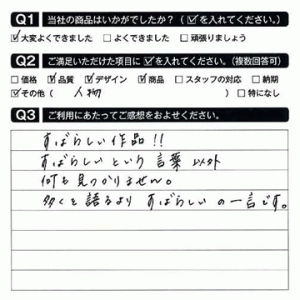 Q1 当社の商品はいかがでしたか？（☑を入れてください。）
☑大変よくできました □よくできました □頑張りましょう
Q2 ご満足いただけた項目に☑を入れてください。（複数回答可）
□価格 ☑品質 ☑デザイン ☑商品 □スタッフの対応 □納期
☑その他（ 人物 ） □特になし
Q3 ご利用にあたってご感想をおよせください。
すばらしい作品!!
すばらしい という 言葉 以外
何も見つかりません。
多くを語るより すばらしい の一言です。